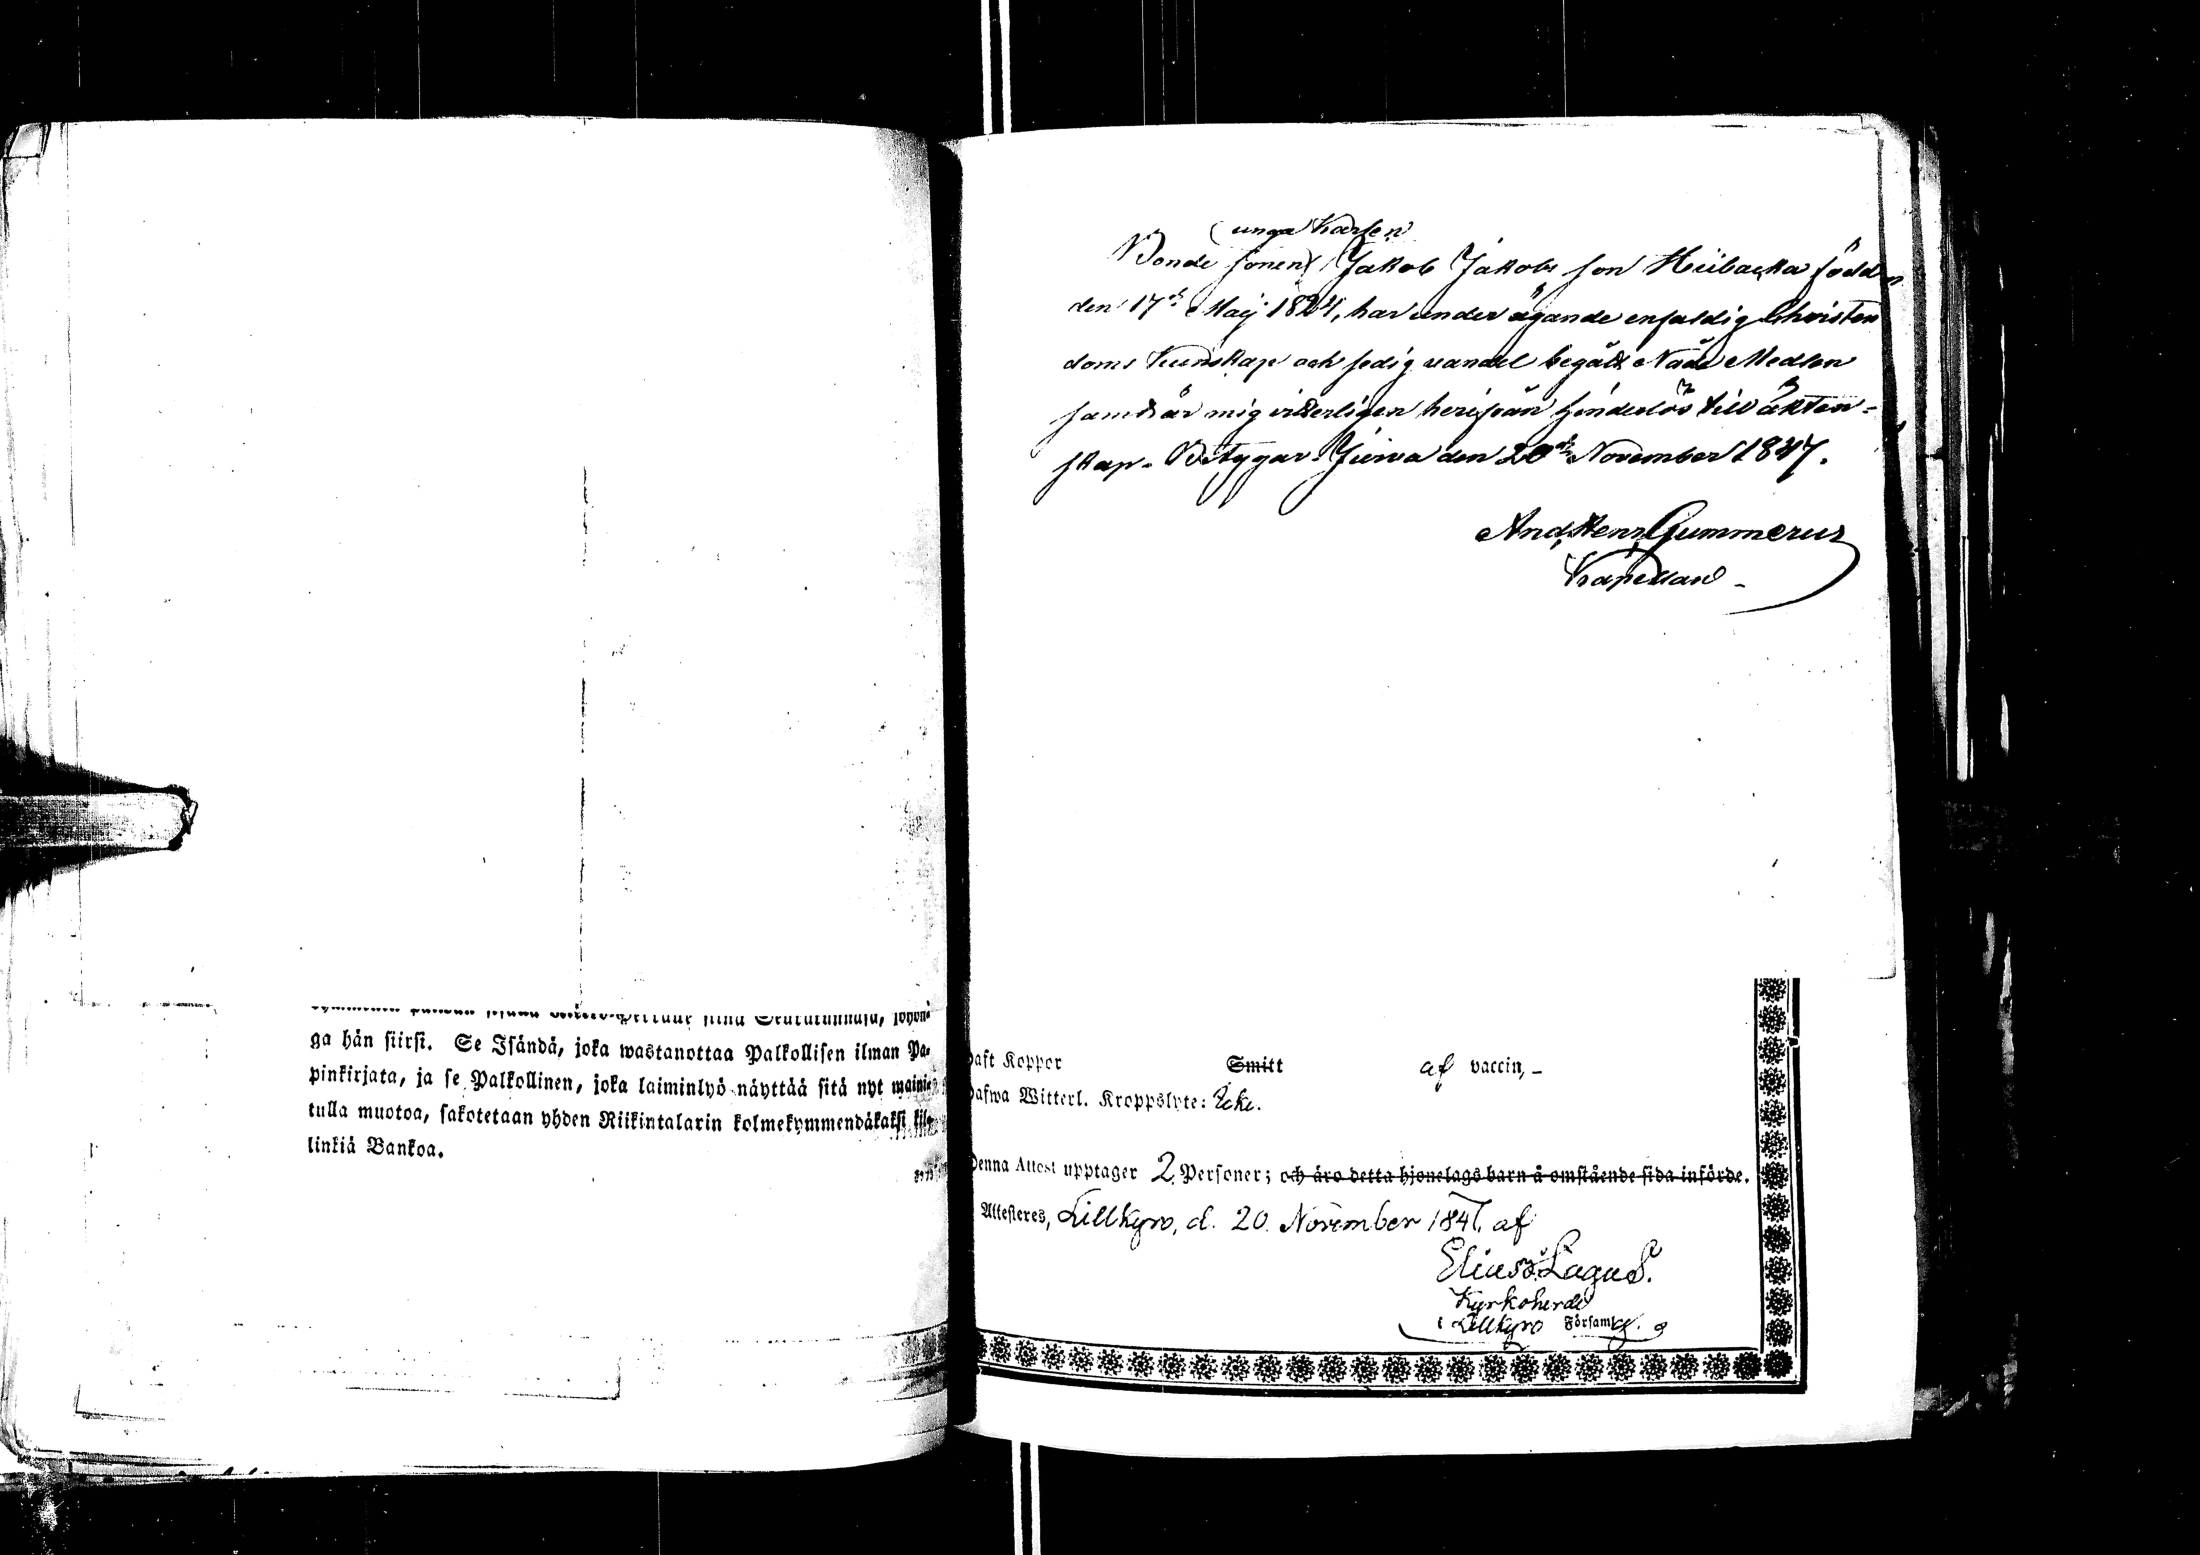 ga hän siirsi. Se Isändä, joka wastanottaa Palkollisen ilman Pa-
pinkirjata, ja se Palkollinen, joka laiminlyö näyttää sitä nyt mainit-
tulla muotoa, sakotetaan yhden Riikintalarin kolmekymmendäkaksi kil-
linkiä Bankoa.
(unga Karlen
Bonde sonen) Jakob Jakobs son Hiibacka född
den 17de Maij 1824, har under ägande enfaldig Christen
doms kunskap och sedig vandel begått Nåde Medlen
samt är mig vitterligen herifrån hinderlös till äkten-
skap. Betygar Jurva den 20de November 1847.
And. Henr. Gummerus
Kapellan -
haft Koppor Smitt af vaccin,-
hafwa Witterl. Kroppslyte: Icke.
Denna Attest upptager 2. Personer; och äro detta hjonelags barn å omstående sida införde.
Attesteras, Lillkyro, d. 20. November 1847. af
Elias Lagus.
Kyrkoherde
i Lillkyro Församlg.